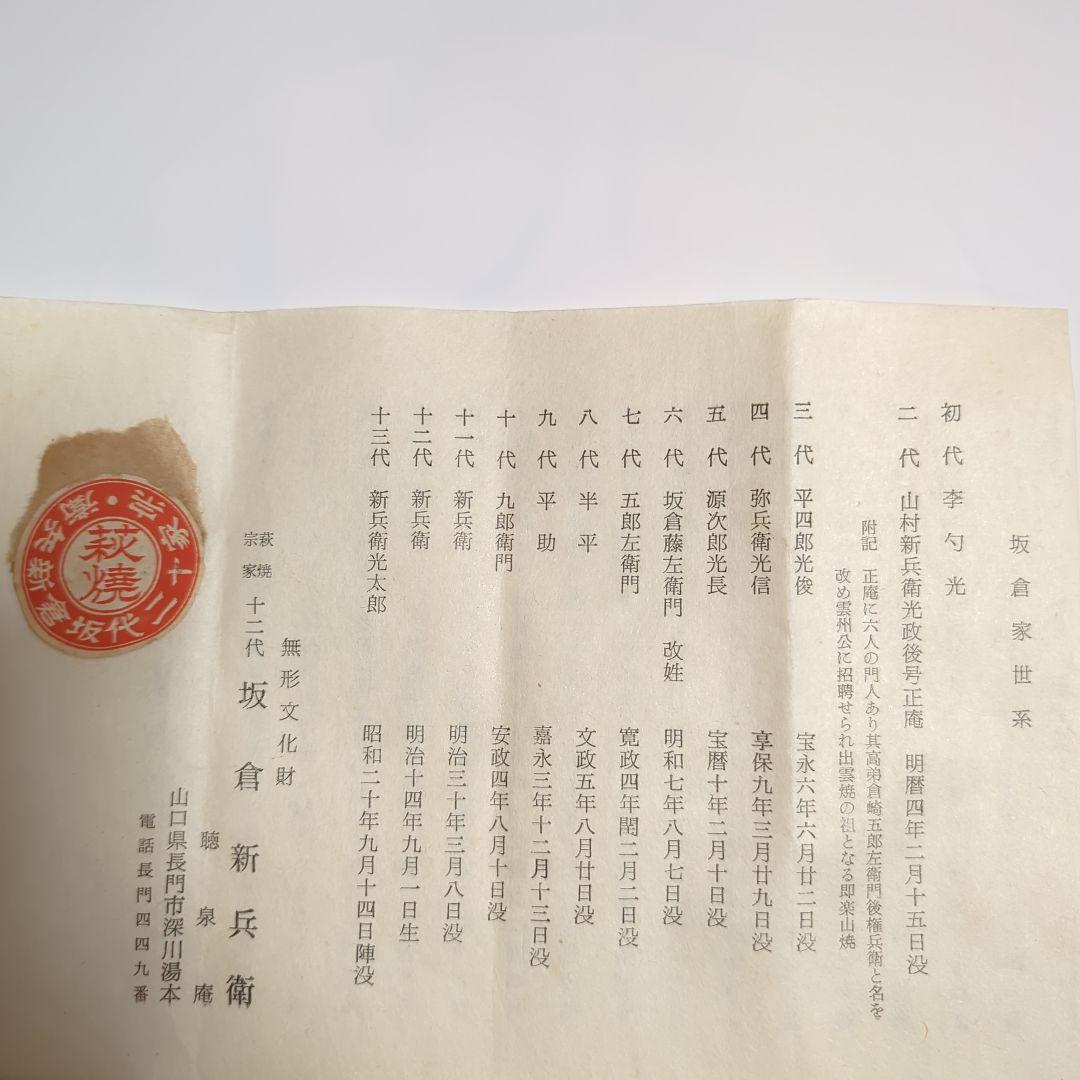 坂倉家世系
初代 李勺光
二代 山村新兵衛光政後号正庵 明暦四年二月十五日没
附記 正庵に六人の門人あり其高弟倉崎五郎左衛門後権兵衛と名を
改め雲州公に招聘せられ出雲焼の祖となる即楽山焼
三代 平四郎光俊 宝永六年六月廿二日没
四代 弥兵衛光信 享保九年三月廿九日没
五代 源次郎光長 宝暦十年二月十日没
六代 坂倉藤左衛門 改姓 明和七年八月七日没
七代 五郎左衛門 寛政四年閏二月二日没
八代 半平 文政五年八月廿日没
九代 平助 嘉永三年十二月十三日没
十代 九郎衛門 安政四年八月十日没
十一代 新兵衛 明治三十年三月八日没
十二代 新兵衛 明治十四年九月一日生
十三代 新兵衛光太郎 昭和二十年九月十四日陣没
無形文化財
萩焼宗家 十二代 坂倉新兵衛
聴泉庵
山口県長門市深川湯本
電話長門四四九番
萩燒
十二代坂倉新兵衛・宗家